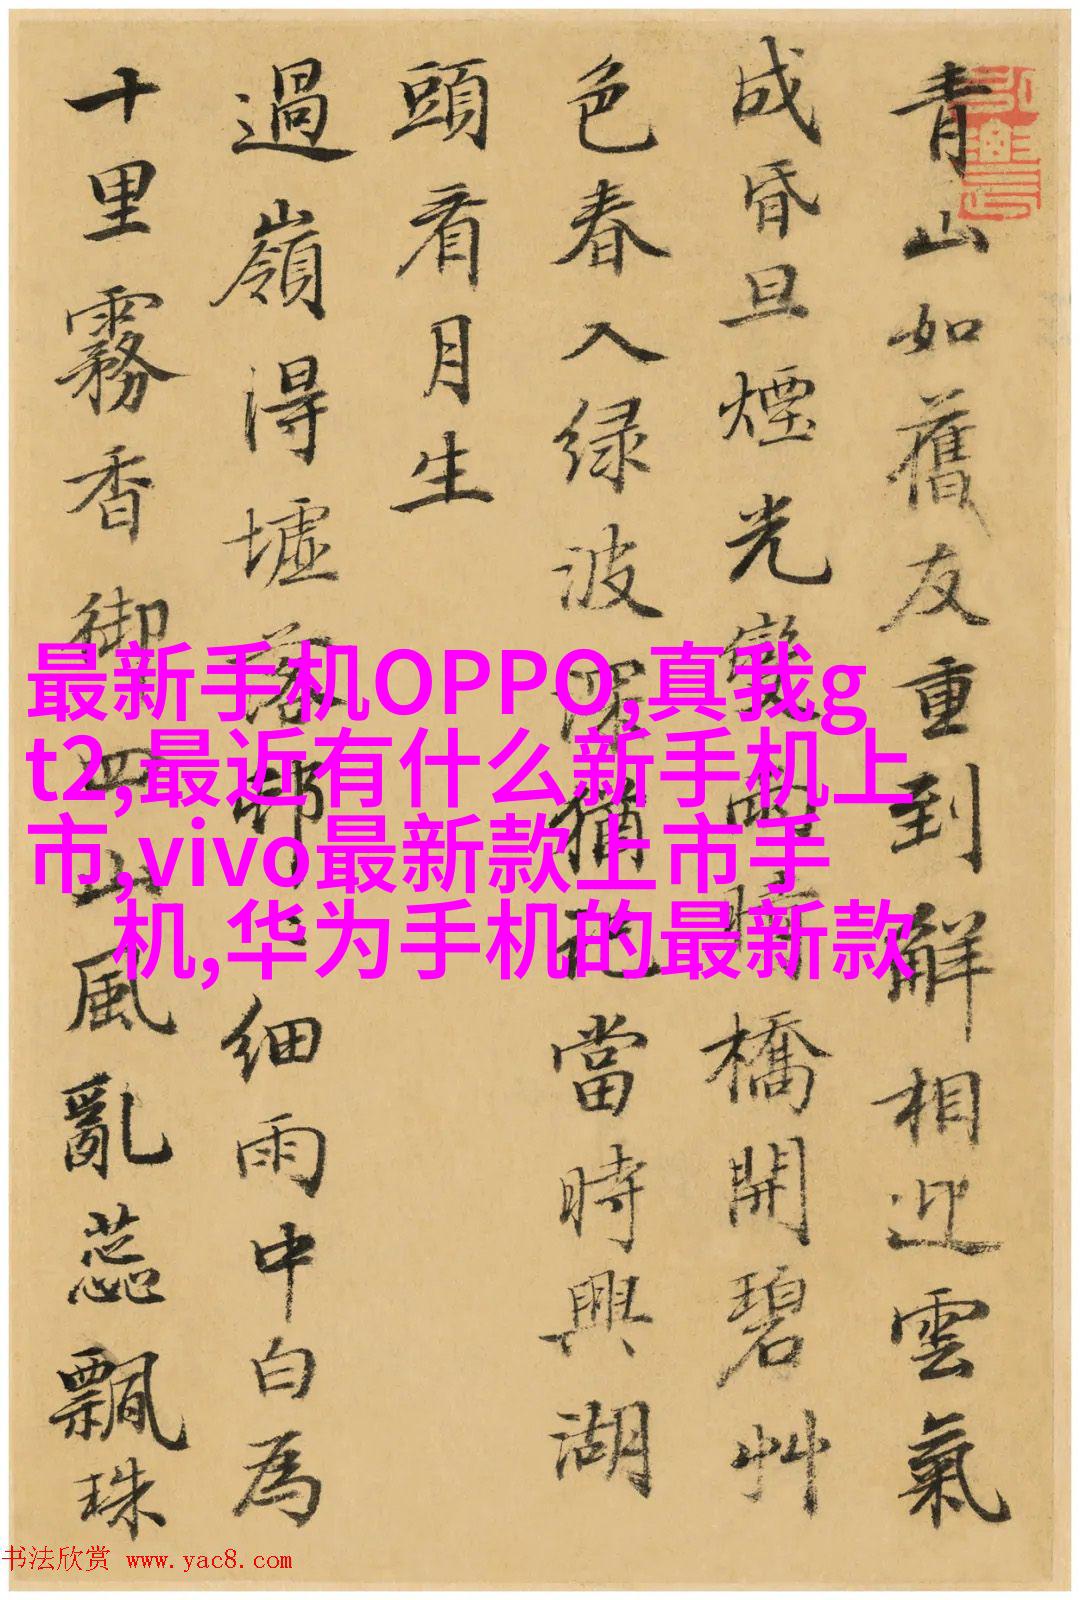 青山如舊友重到解相迎雲氣
成昏旦煙光變雨晴橋開碧艸
色春入绿波深猶記當時興湖
頭看月生
過嶺得墟落邨々细雨中白為
十里霧香御四山風亂蕊飄珠
最新手机OPPO,真我g
t2,最近有什么新手机上
市,vivo最新款上市手
机,华为手机的最新款
书法欣赏 www.yac8.com